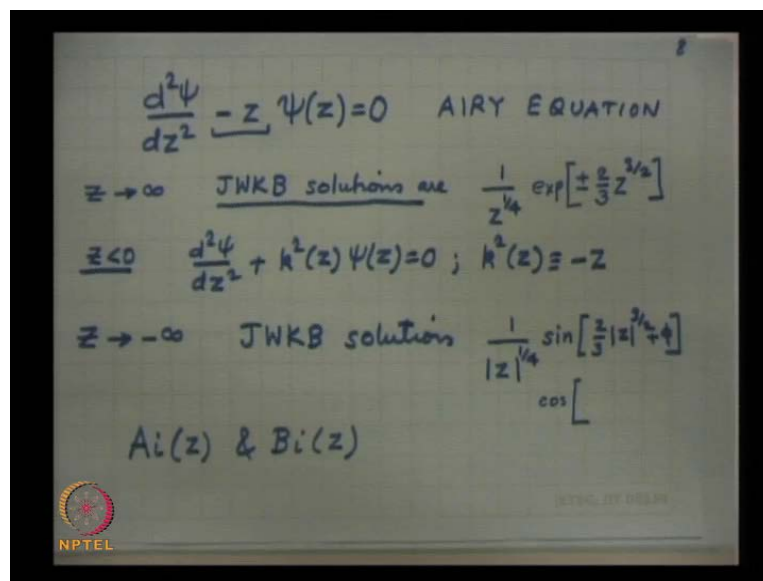 8
d²ψ/dz² - z ψ(z)=0 AIRY EQUATION
z → ∞ JWKB solutions are 1/z^(1/4) exp[± 2/3 z^(3/2)]
z<0 d²ψ/dz² + k²(z) ψ(z)=0 ; k²(z) ≡ -z
z → -∞ JWKB solutions 1/|z|^(1/4) sin[2/3 |z|^(3/2) + φ]
cos[
Ai(z) & Bi(z)
NPTEL